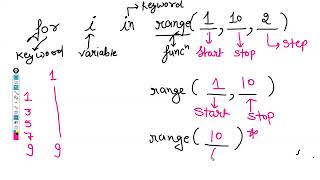 Keyword
for i in range (1, 10, 2)
Keyword variable funcⁿ start stop step
1
1
3
5
7
9 9
range (1, 10)
start stop
range (10) *